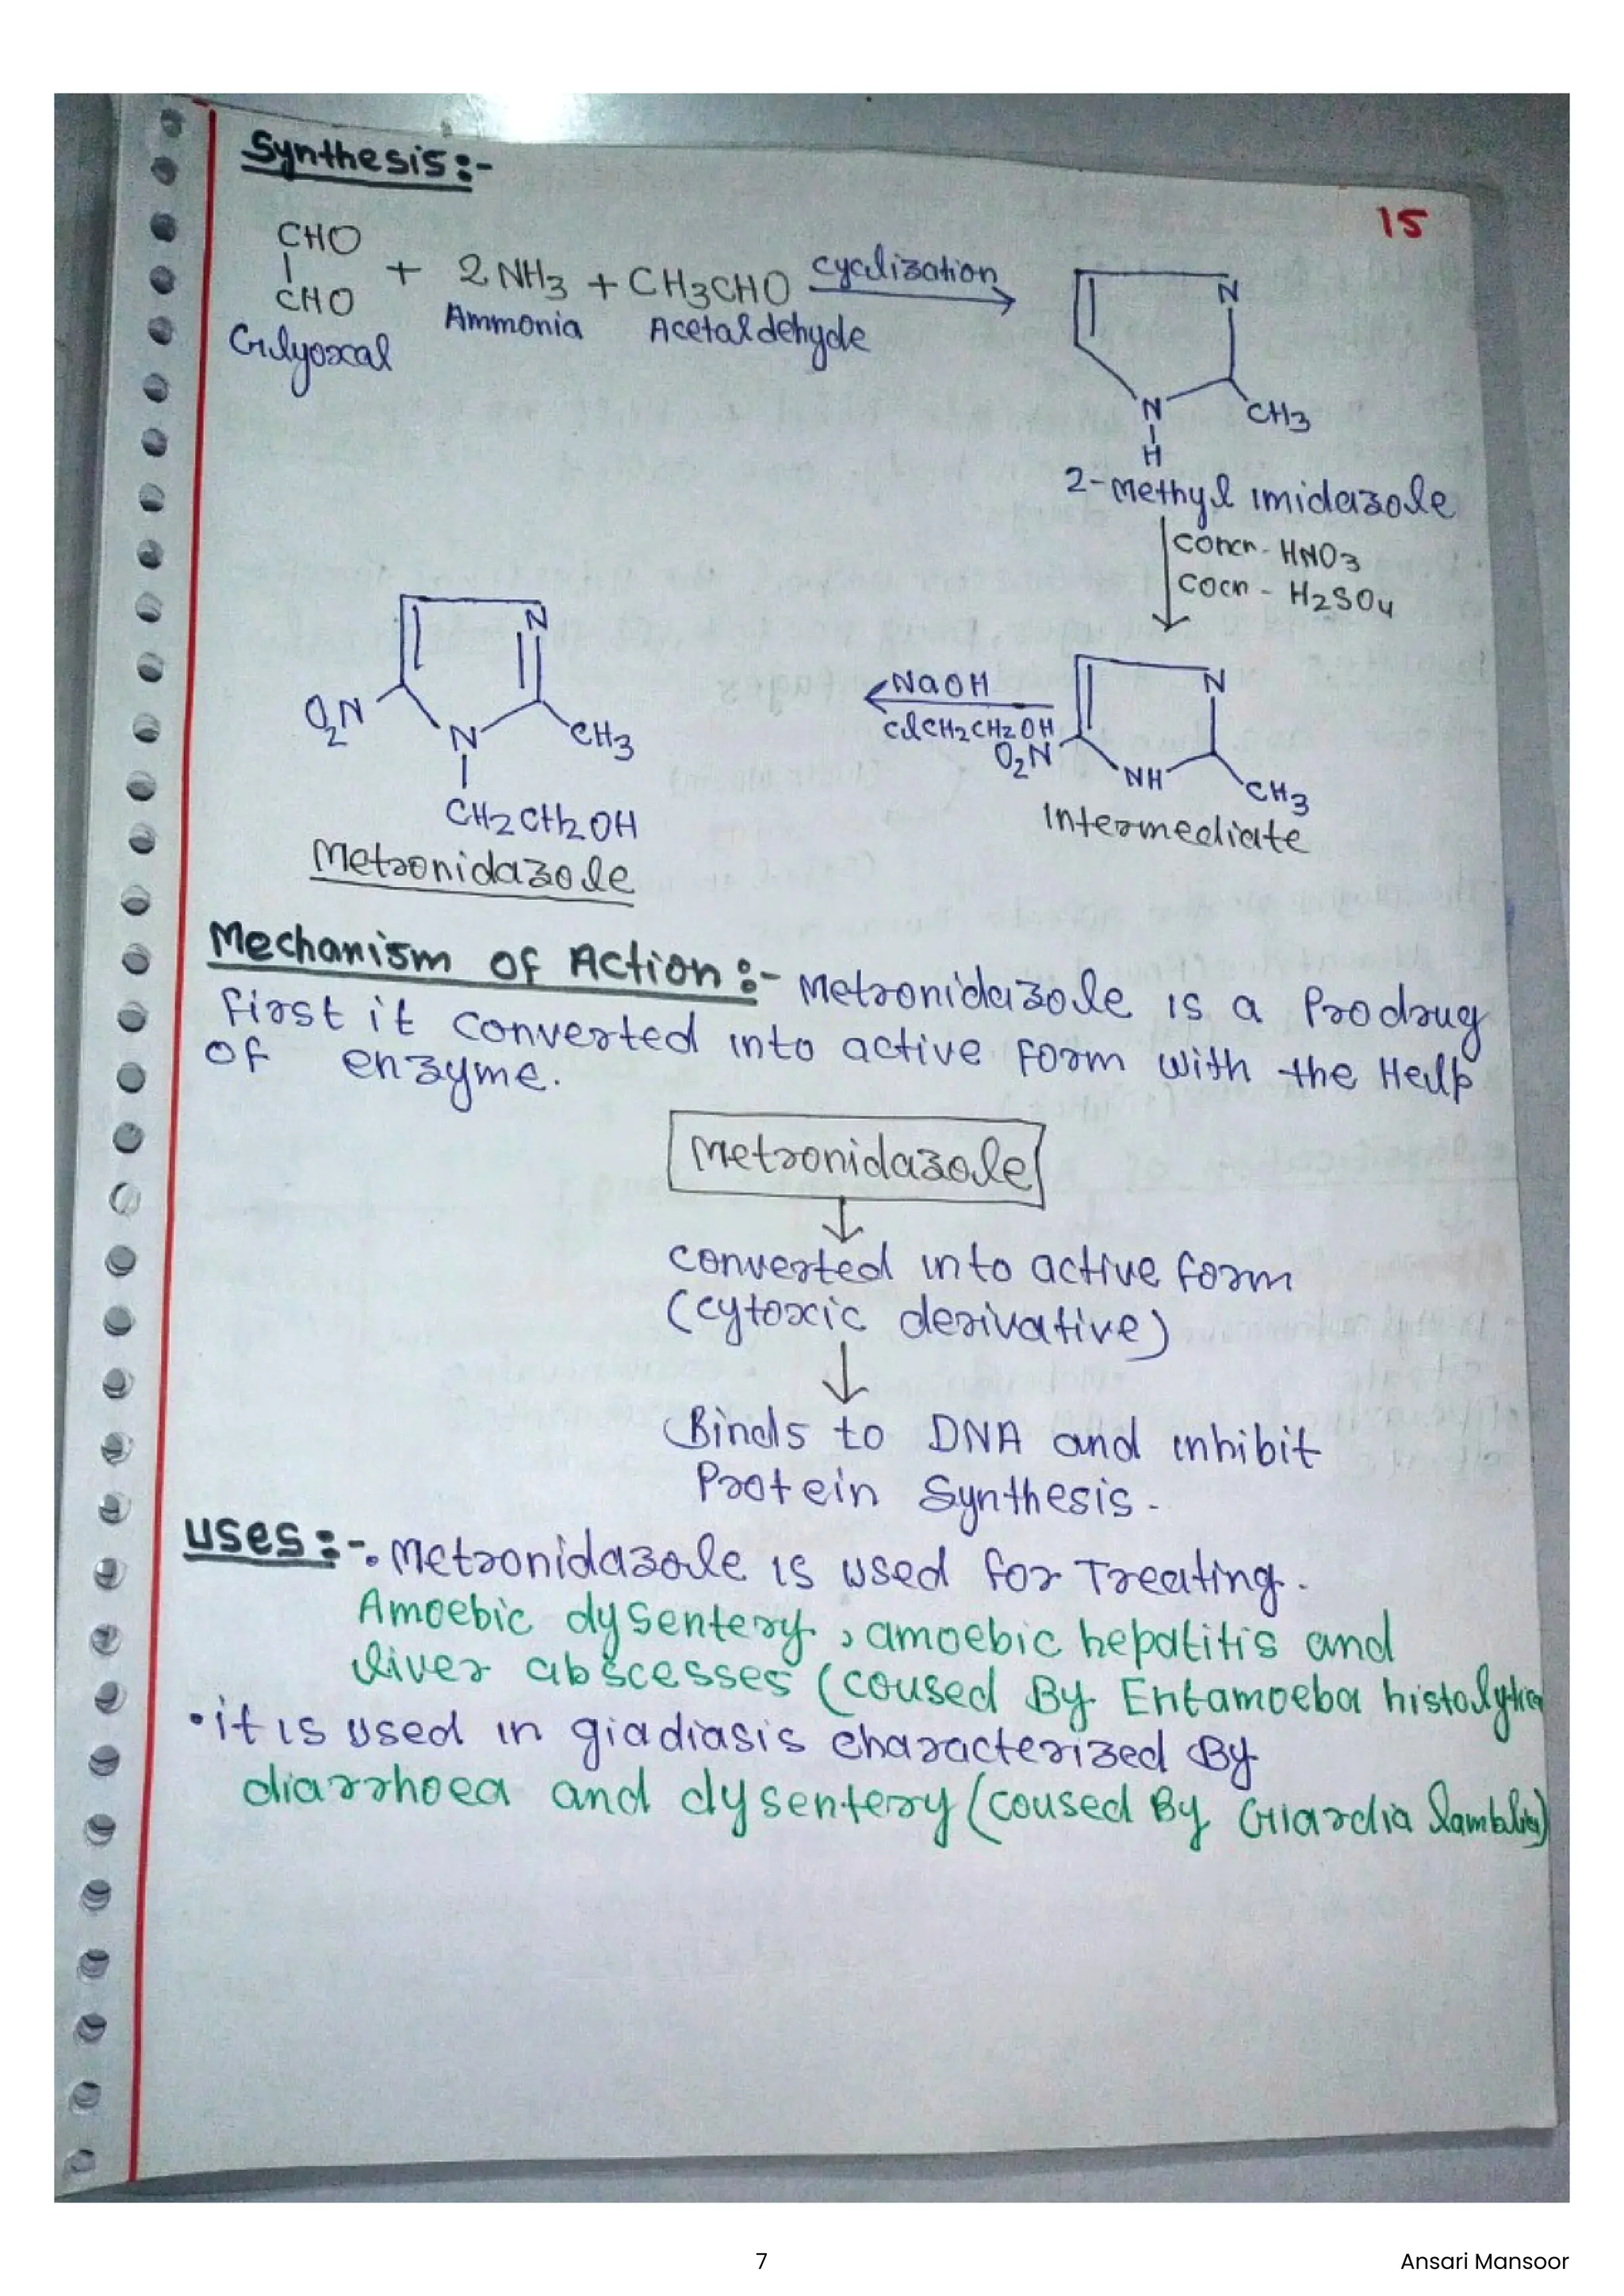 Synthesis:-
15
CHO
|
CHO
+ 2NH3 + CH3CHO cyclization
Glyoxal
Ammonia Acetaldehyde
N
N
H
CH3
2-Methyl imidazole
concn- HNO3
cocn - H2SO4
N
O2N
N
CH3
CH2CH2OH
Metronidazole
NaOH
ClCH2CH2OH
N
O2N
NH
CH3
Intermediate
Mechanism of Action:- Metronidazole is a Prodrug
First it converted into active form with the Help
of enzyme.
Metronidazole
converted into active form
(cytoxic derivative)
Binds to DNA and inhibit
Protein Synthesis-
uses:-. Metronidazole is used for Treating.
Amoebic dysentery, amoebic hepatitis and
liver abscesses (coused By Entamoeba histolytica
•it is used in giadiasis characterized By
diarrhoea and dysentery (coused By Giardia lamblia)
7
Ansari Mansoor